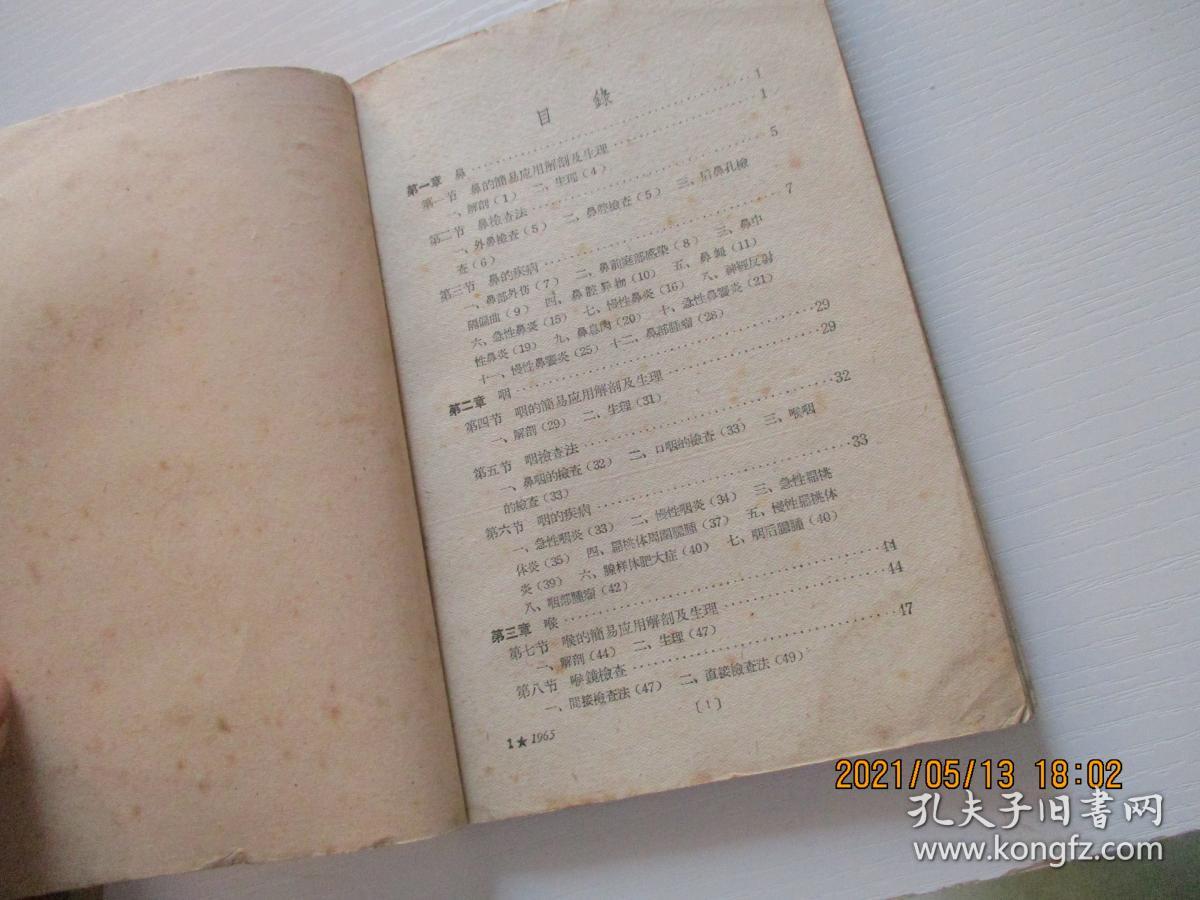 目　錄
第一章　鼻……………………………1
第一节　鼻的簡易应用解剖及生理……………………1
一、解剖(1)　二、生理(4)
第二节　鼻檢查法……………………………5
一、外鼻檢查(5)　二、鼻腔檢查(5)　三、后鼻孔檢
查(6)
第三节　鼻的疾病……………………………7
一、鼻部外伤(7)　二、鼻前庭部感染(8)　三、鼻中
隔偏曲(9)　四、鼻腔异物(10)　五、鼻衄(11)
六、急性鼻炎(15)　七、慢性鼻炎(16)　八、神經反射
性鼻炎(19)　九、鼻息肉(20)　十、急性鼻竇炎(21)
十一、慢性鼻竇炎(25)　十二、鼻部腫瘤(28)
第二章　咽……………………………29
第四节　咽的簡易应用解剖及生理……………………29
一、解剖(29)　二、生理(31)
第五节　咽檢查法……………………………32
一、鼻咽的檢查(32)　二、口咽的檢查(33)　三、喉咽
的檢查(33)
第六节　咽的疾病……………………………33
一、急性咽炎(33)　二、慢性咽炎(34)　三、急性扁桃
体炎(35)　四、扁桃体周圍膿腫(37)　五、慢性扁桃体
炎(39)　六、腺样体肥大症(40)　七、咽后膿腫(40)
八、咽部腫瘤(42)
第三章　喉……………………………44
第七节　喉的簡易应用解剖及生理……………………44
一、解剖(44)　二、生理(47)
第八节　喉鏡檢查……………………………47
一、間接檢查法(47)　二、直接檢查法(49)
〔1〕
1★1965
2021/05/13 18:02
孔夫子旧書网
www.kongfz.com